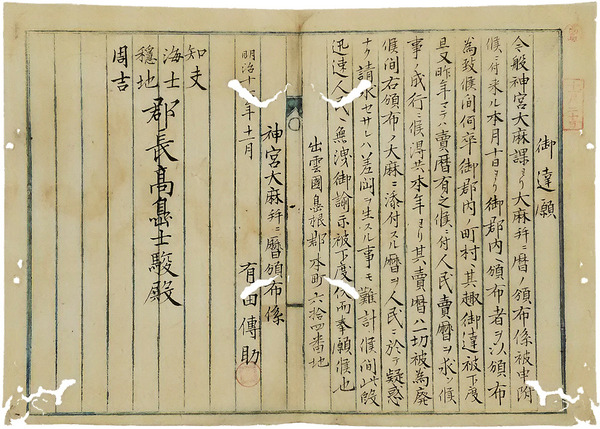 御達願
今般神宮大麻課ヨリ大麻并ニ暦ノ頒布係被申附
候ニ付来ル本月十日ヨリ御郡内ヘ頒布者ヲ以頒布
為致候間何卒御郡内ノ町村ヘ其趣御達被下度
且又昨年マテハ賣暦有之候ニ付人民賣暦ヲ求ソ候
事ノ成行ニ候得共本年ヨリ其賣暦ハ一切被為廃
候間右頒布ノ大麻ニ添付スル暦ヲ人民ニ於テ疑惑
ナク請求セサレハ差閊ヲ生スル事モ難計候間此段
迅速人民ヘ無洩御諭示被下度依而奉願候也
出雲國島根郡本町六拾四番地
神宮大麻并ニ暦頒布係
有田傳助
明治十 年十一月
知夫
海士
穩地
周吉
郡長高島士駿殿